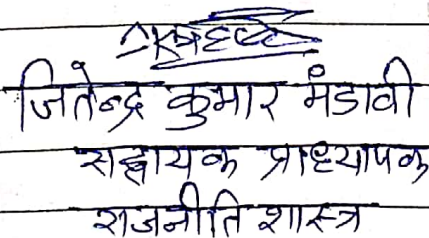 जितेन्द्र कुमार मंडावी
सहायक प्राध्यापक
राजनीति शास्त्र